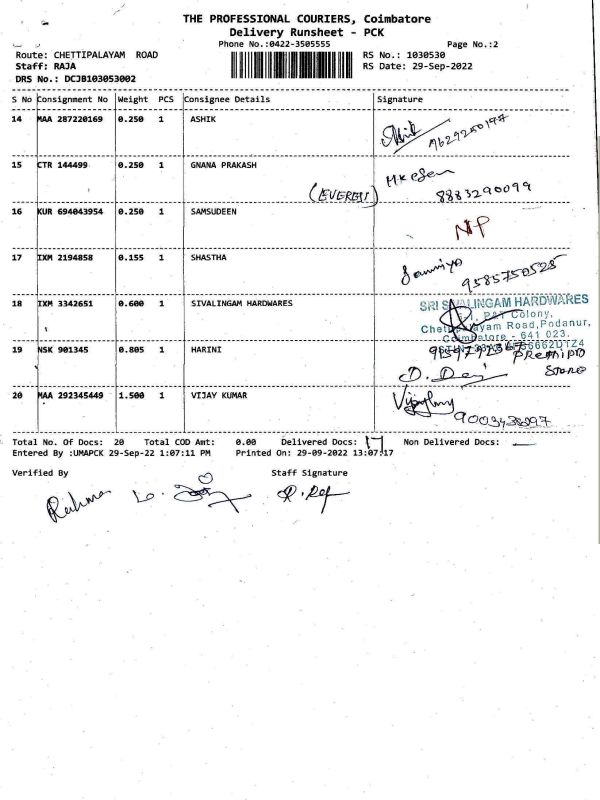 THE PROFESSIONAL COURIERS, Coimbatore
Delivery Runsheet - PCK
Phone No.:0422-3505555 Page No.:2
Route: CHETTIPALAYAM ROAD RS No.: 1030530
Staff: RAJA RS Date: 29-Sep-2022
DRS No.: DCJB103053002
S No Consignment No Weight PCS Consignee Details Signature
14 MAA 287220169 0.250 1 ASHIK
9629250197
15 CTR 144499 0.250 1 GNANA PRAKASH
(EVEREST)
8883290099
16 KUR 694043954 0.250 1 SAMSUDEEN
NP
17 IXM 2194858 0.155 1 SHASTHA
9585750525
18 IXM 3342651 0.600 1 SIVALINGAM HARDWARES
SRI SIVALINGAM HARDWARES
P&T Colony,
Chettipalayam Road, Podanur,
Coimbatore - 641 023.
19 NSK 901345 0.805 1 HARINI
STORE
D. Devi
20 MAA 292345449 1.500 1 VIJAY KUMAR
Total No. Of Docs: 20 Total COD Amt: 0.00 Delivered Docs: 17 Non Delivered Docs: —
Entered By :UMAPCK 29-Sep-22 1:07:11 PM Printed On: 29-09-2022 13:07:17
Verified By Staff Signature
Rahma